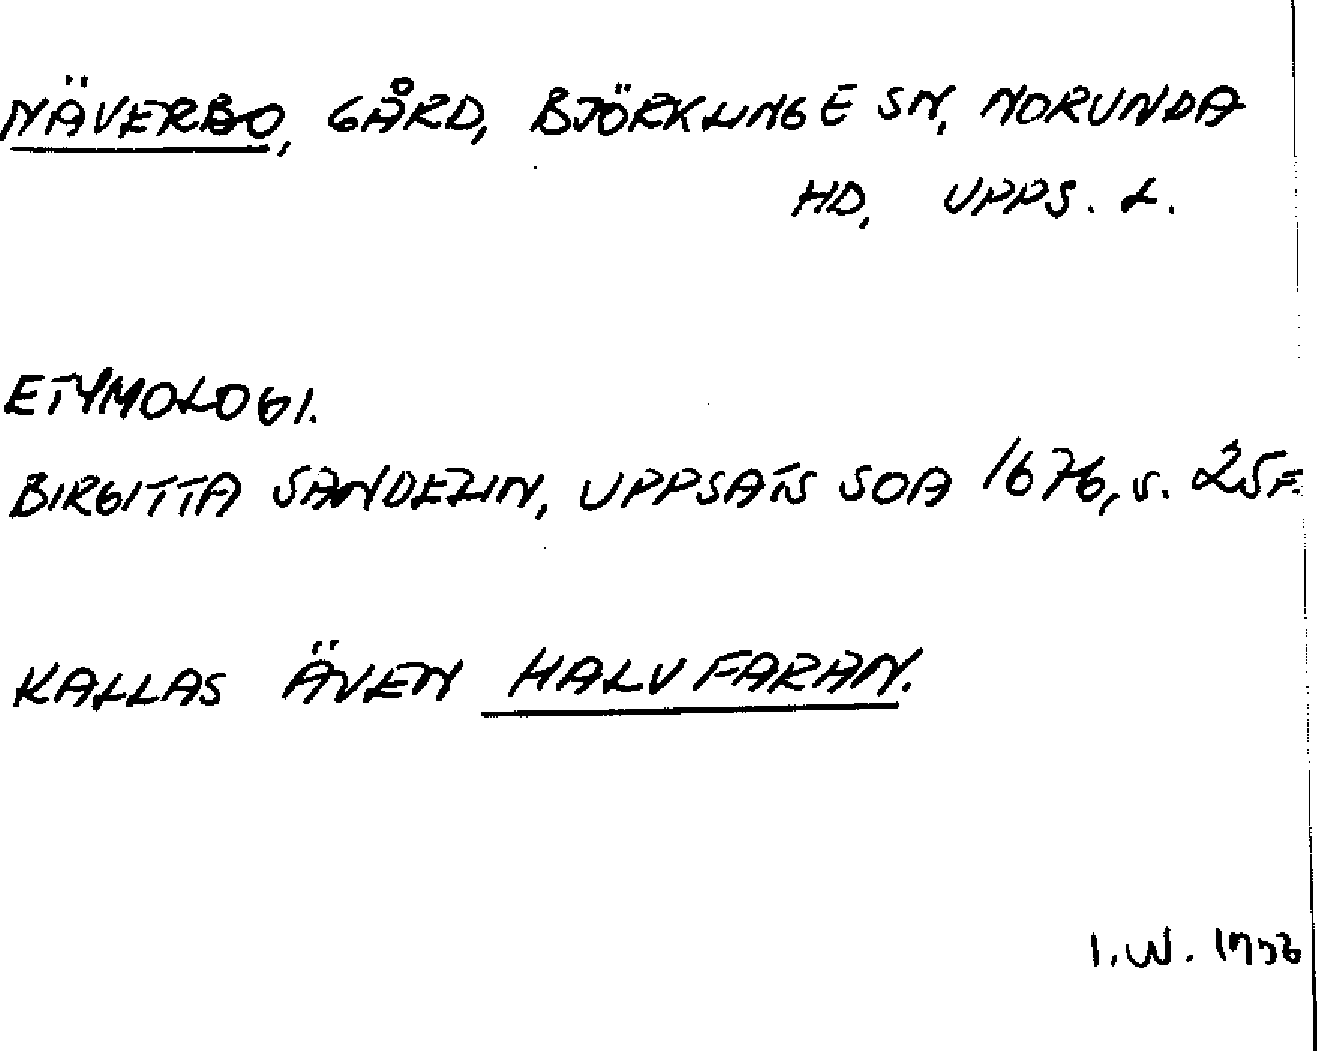 NÄVERBO, GÅRD, BJÖRKLINGE SN, NORUNDA
HD, UPPS. L.
ETYMOLOGI.
BIRGITTA SANDELIN, UPPSATS SOA 1676, s. 25F
KALLAS ÄVEN HALVFARAN.
I.W.